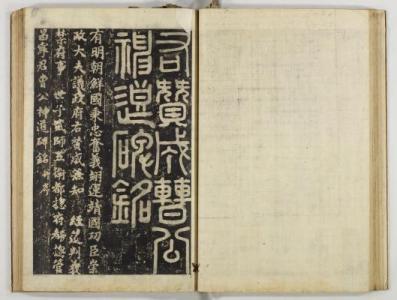 右贊成曺公
神道碑銘
有明朝鮮國秉忠奮義翊運靖國功臣崇
政大夫議政府右贊成兼知 經筵判義
禁府事 世子貳師五衛都摠府都摠管
昌寧君曺公神道碑銘 幷序